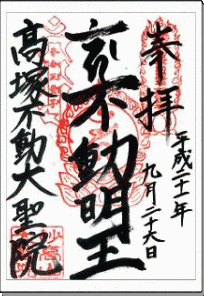 奉拝
平成二十一年
九月二十六日
不動明王
高塚不動大聖院